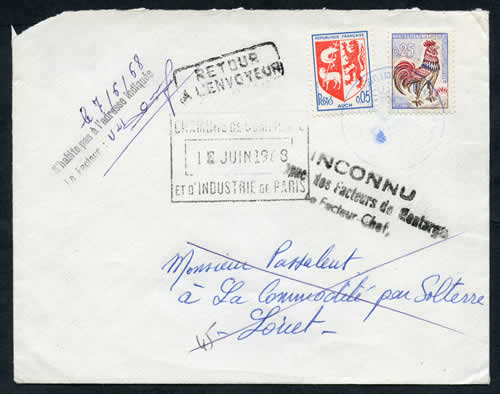 le 7/6/68
N'habite pas à l'adresse indiquée
Le Facteur :
RETOUR
A L'ENVOYEUR
REPUBLIQUE FRANCAISE
Postes 0,05
AUCH
0,25
CHAMBRE DE COMMERCE
12 JUIN 1968
ET D'INDUSTRIE DE PARIS
INCONNU
des Facteurs de Montargis
Le Facteur-Chef,
Monsieur Passalent
à La Commodité par Solterre
45 - Loiret -